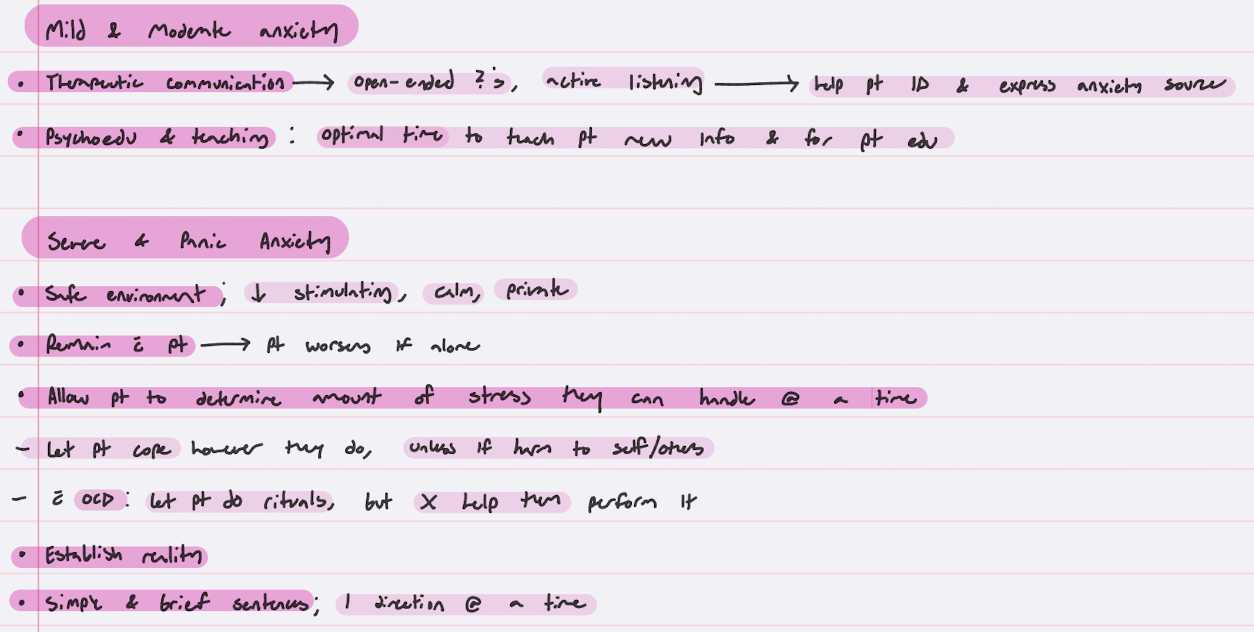 Mild & Moderate anxiety
• Therapeutic communication → open-ended ?'s, active listening → help pt ID & express anxiety source
• Psychoedu & teaching : optimal time to teach pt new info & for pt edu
Severe & Panic Anxiety
• Safe environment; ↓ stimulating, calm, private
• Remain c̄ pt → pt worsens if alone
• Allow pt to determine amount of stress they can handle @ a time
- Let pt cope however they do, unless if harm to self/others
- c̄ OCD: let pt do rituals, but X help them perform it
• Establish reality
• Simple & brief sentences; 1 direction @ a time